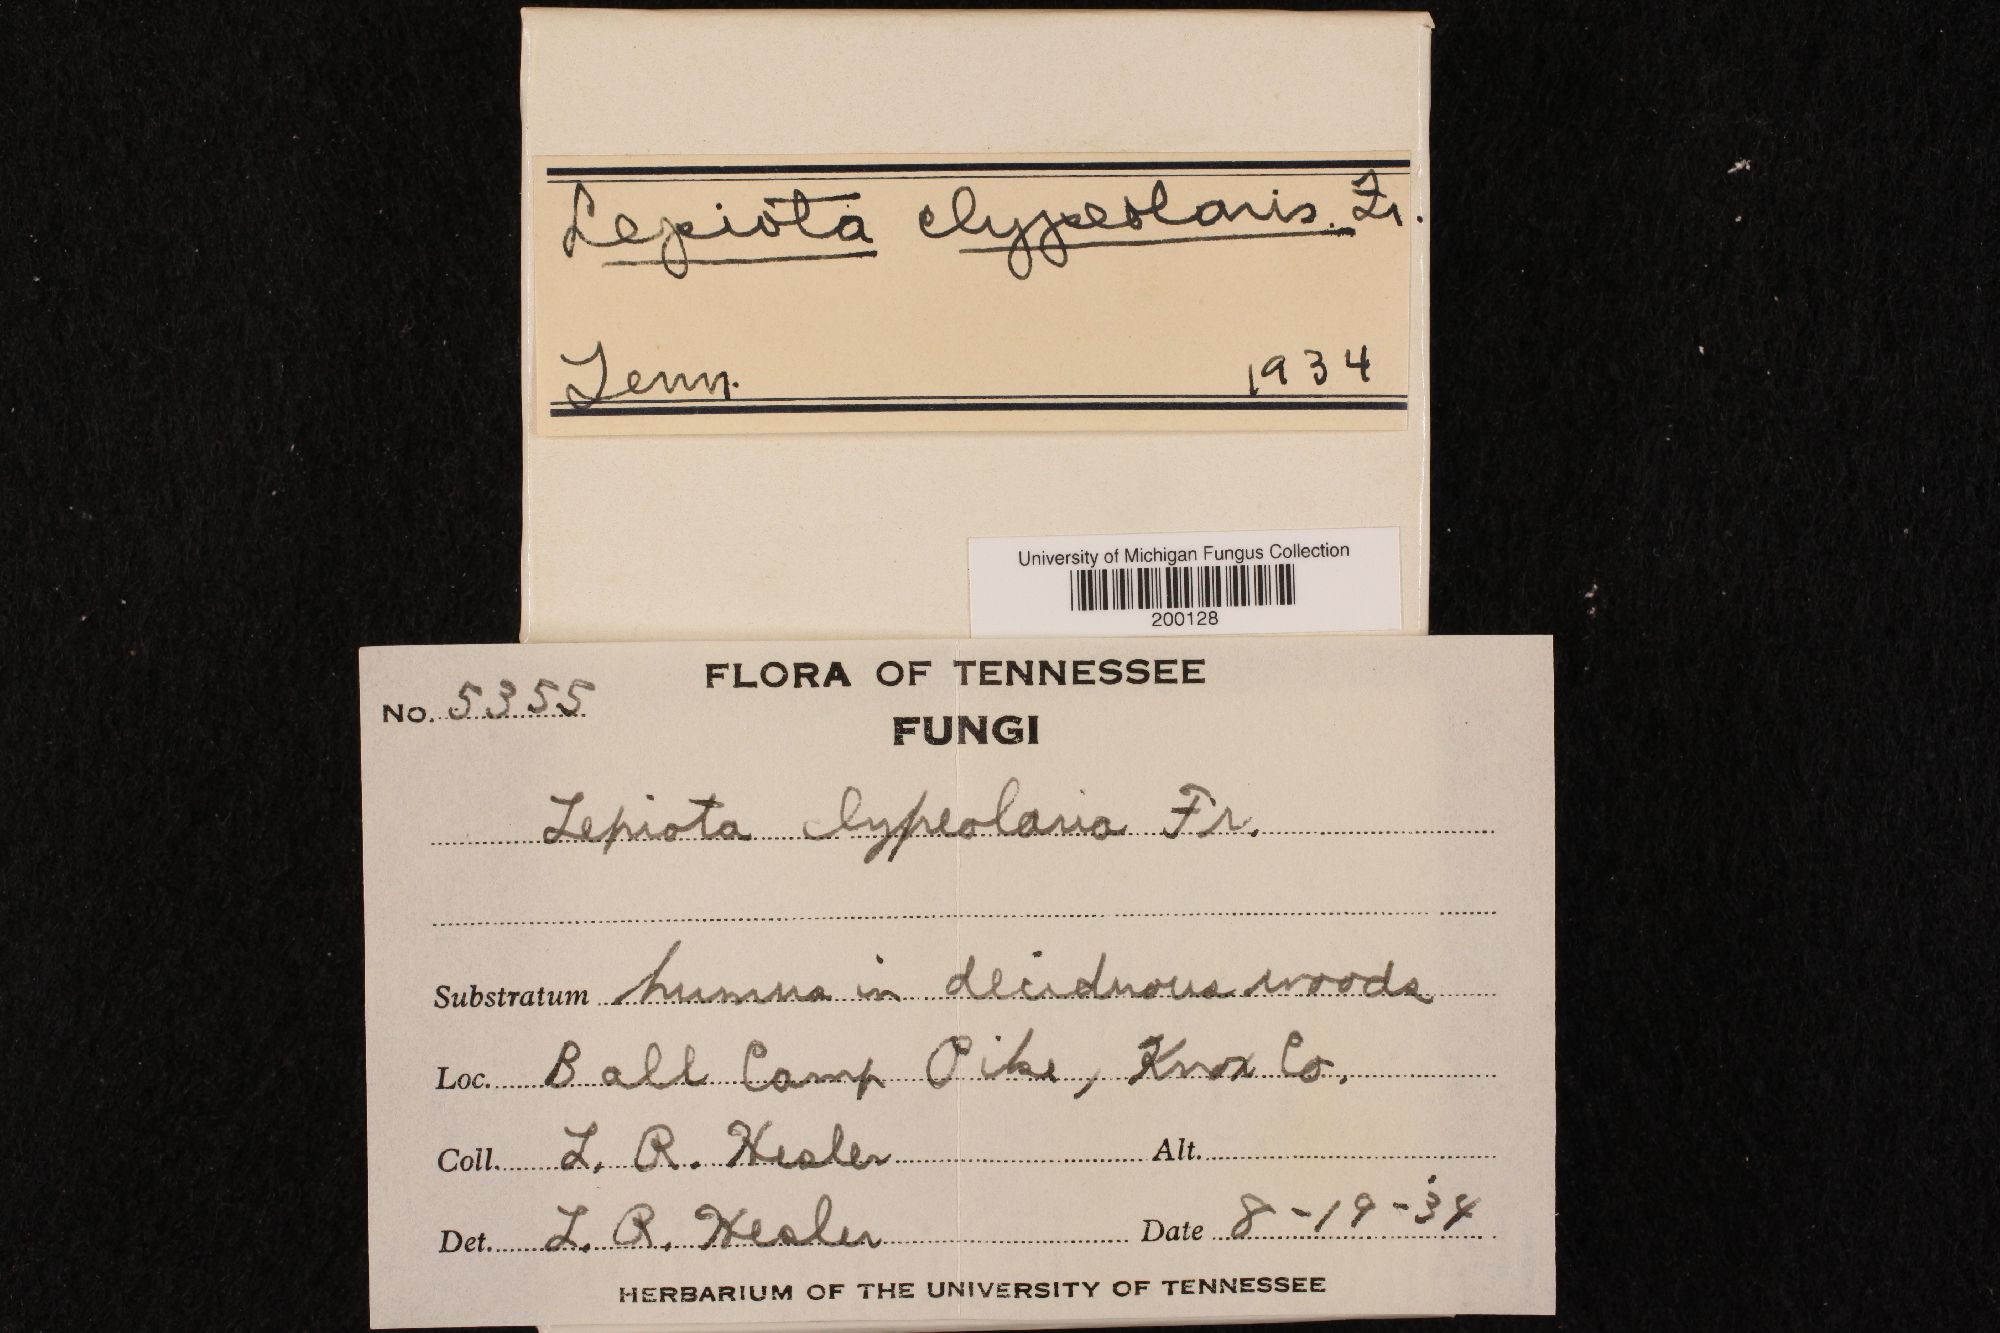 Lepiota clypeolaris. Fr.
Tenn. 1934
University of Michigan Fungus Collection
200128
FLORA OF TENNESSEE
No. 5355
FUNGI
Lepiota clypeolaria Fr.
Substratum humus in deciduous woods
Loc. Ball Camp Pike, Knox Co.
Coll. L. R. Hesler Alt.
Det. L. R. Hesler Date 8-19-34
HERBARIUM OF THE UNIVERSITY OF TENNESSEE